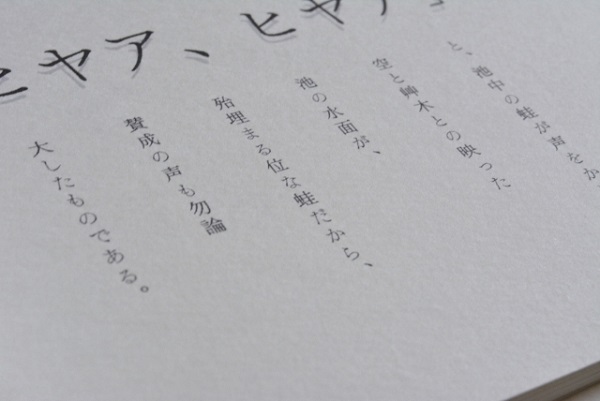 ヒヤア、ヒヤア、
と、池中の蛙が声をか
空と艸木との映った
池の水面が、
殆埋まる位な蛙だから、
賛成の声も勿論
大したものである。